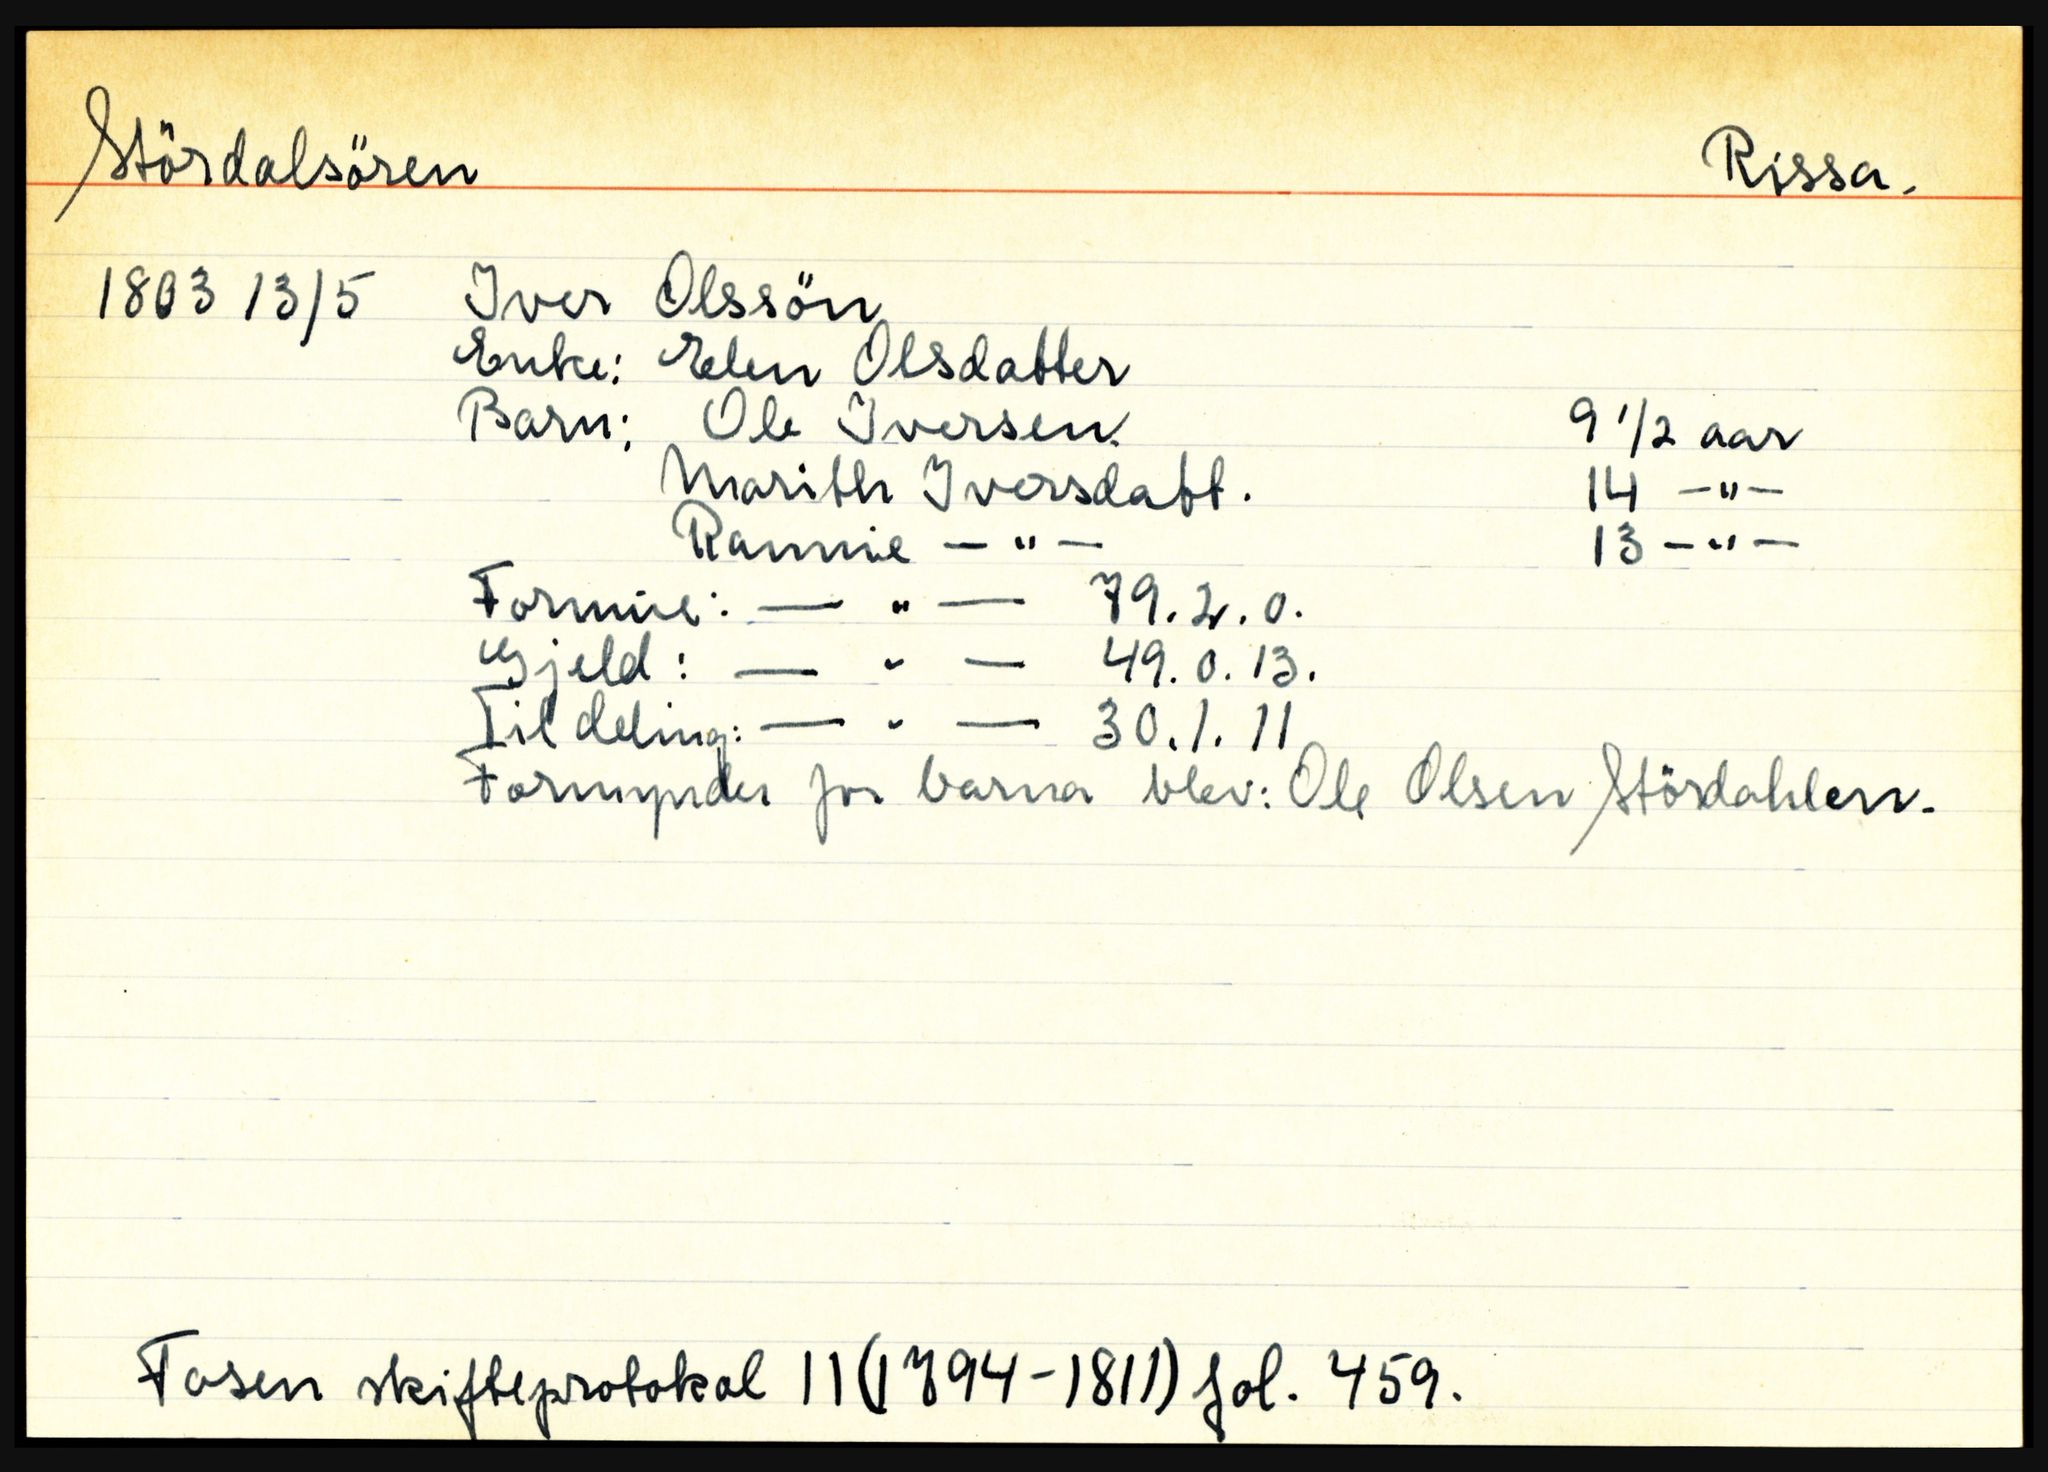 Stördalsören Rissa.
1803 13/5 Iver Olssön
Enke: Elen Olsdatter
Barn: Ole Iversen. 9 1/2 aar
Marith Iversdatt. 14 —"—
Rannie —"— 13 —"—
Formue: — " — 79. 2. 0.
Gjeld: — " — 49. 0. 13.
Til deling: — " — 30. 1. 11
Formynder for barna blev: Ole Olsen Stördahlen.
Fosen skifteprotokol 11 (1794-1811) fol. 459.